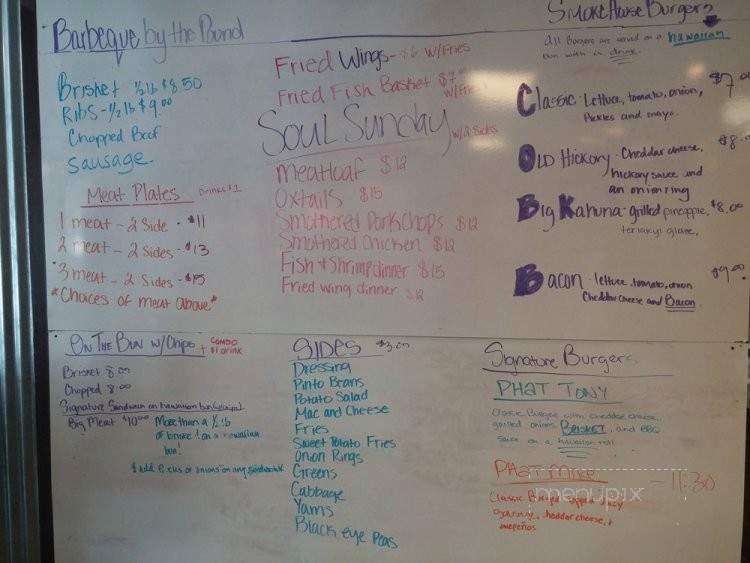 Barbeque by the Pound
Brisket 1/2 lb $8.50
Ribs - 1/2 lb $9.00
Chopped Beef
Sausage
Meat Plates Drinks $1
1 meat - 2 Side - $11
2 meat - 2 Sides - $13
3 meat - 2 Sides - $15
*Choices of meat above*
Fried Wings - $6 w/Fries
Fried Fish Basket $7.00 w/Fries
Soul Sunday w/2 Sides
Meatloaf $12
Oxtails $15
Smothered Pork Chops $12
Smothered Chicken $12
Fish & Shrimp dinner $15
Fried wing dinner $12
SmokeHouse Burgers
All Burgers are served on a hawaiian
bun with a drink.
Classic - Lettuce, tomato, onion, $7.00
Pickles and mayo.
Old Hickory - Cheddar cheese, $8.00
hickory sauce and
an onion ring
Big Kahuna - grilled pineapple, $8.00
teriakyi glaze,
Bacon - lettuce, tomato, onion $9.00
Cheddar Cheese and Bacon
On The Bun w/Chips + Combo $1 drink
Brisket 8.00
Chopped 8.00
Signature Sandwich on hawaiian bun (w/chips)
Big Meat $10.00 More than a 1/2 lb
of on a hawaiian
bun!
on any sandwich
SIDES $3.00
Dressing
Pinto Beans
Potato Salad
Mac and Cheese
Fries
Sweet Potato Fries
Onion Rings
Greens
Cabbage
Yams
Black eye Peas
Signature Burgers
PHAT TONY
Classic Burger with cheddar cheese,
grilled onions, BRISKET, and BBQ
sauce on a hawaiian roll
PHAT MIKE - 11.30
Classic Burger
cheddar cheese, +
menupix